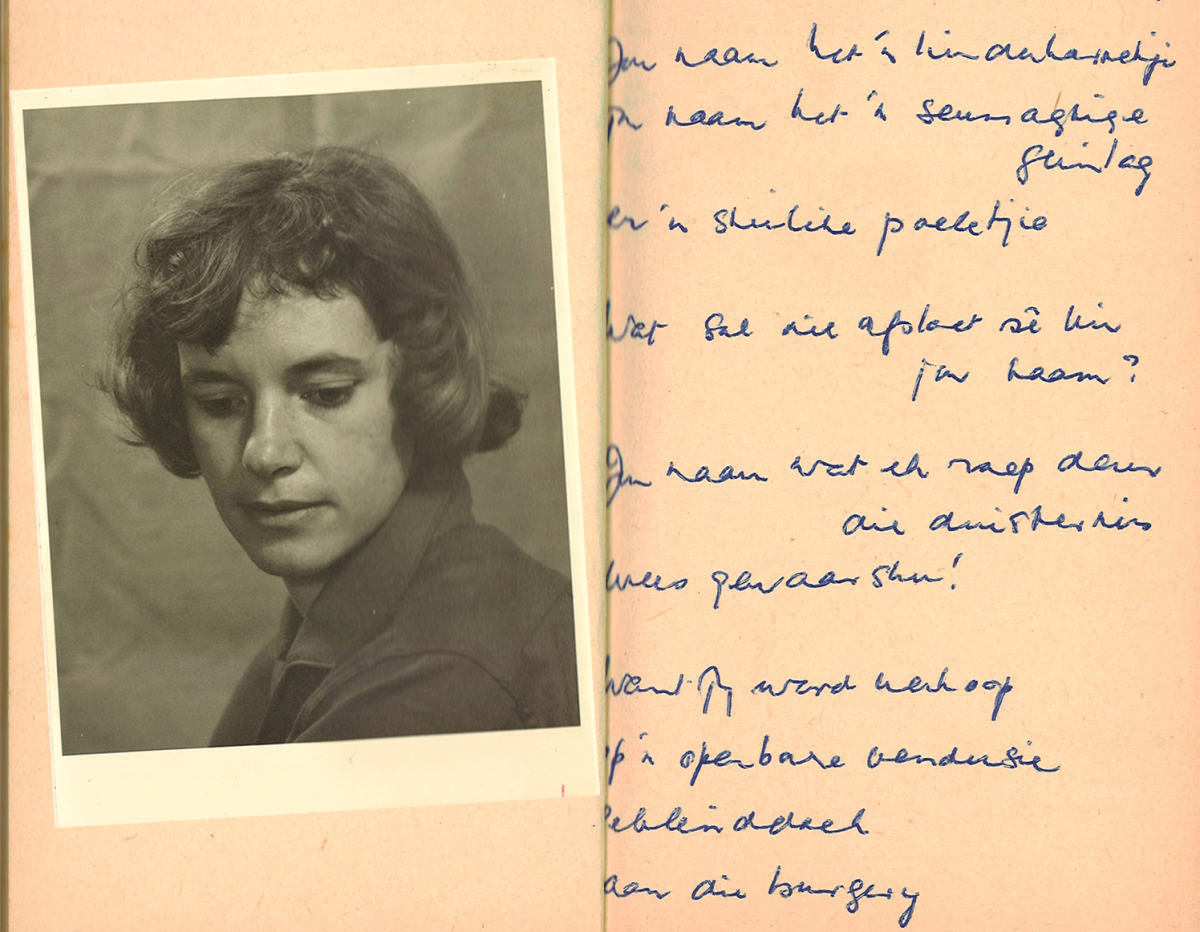 Jou naam het 'n kinderkarretjie
Jou naam het 'n seunsagtige
glimlag
en 'n skielike poeletjie
Wat sal die afslaer sê
jou naam?
Jou naam wat ek roep deur
die duisternis
wees gewaarsku!
Want jy word verkoop
op 'n openbare vendusie
geblinddoek
aan die burgery